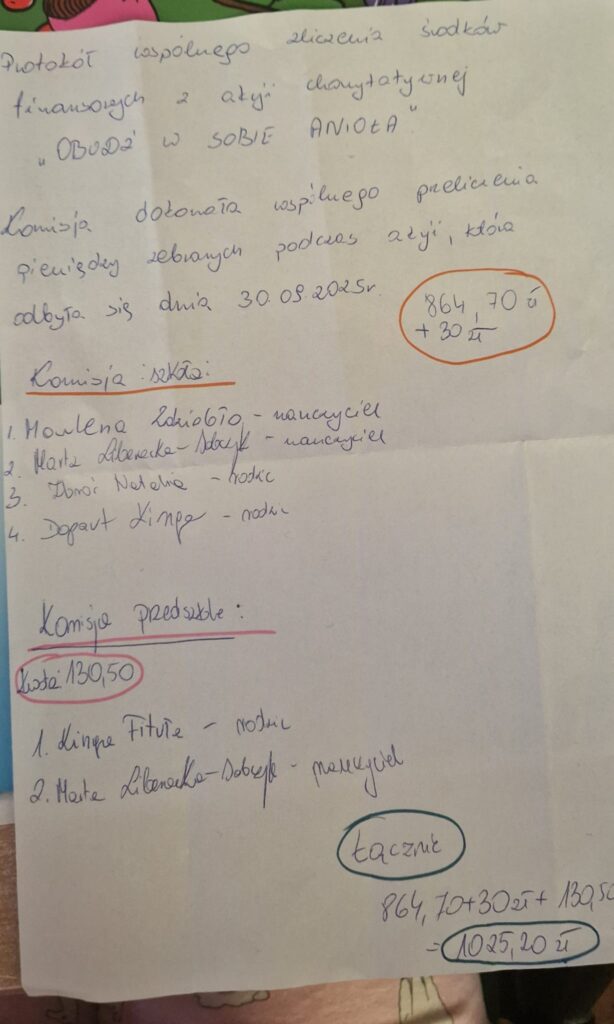 Protokół wspólnego zliczenia środków
finansowych z akcji charytatywnej
„OBUDŹ W SOBIE ANIOŁA"
Komisja dokonała wspólnego przeliczenia
pieniędzy zebranych podczas akcji, która
odbyła się dnia 30.09.2025r.
864,70 zł
+ 30 zł
Komisja szkoła:
1. - nauczyciel
2. Marta Libenacka-Sobczyk - nauczyciel
3. Natalia - rodzic
4. Dopart Kinga - rodzic
Komisja przedszkole:
Kwota 130,50
1. Kinga - rodzic
2. Marta Libenacka-Sobczyk - nauczyciel
Łącznie
864,70+30zł+ 130,50
= 1025,20 zł